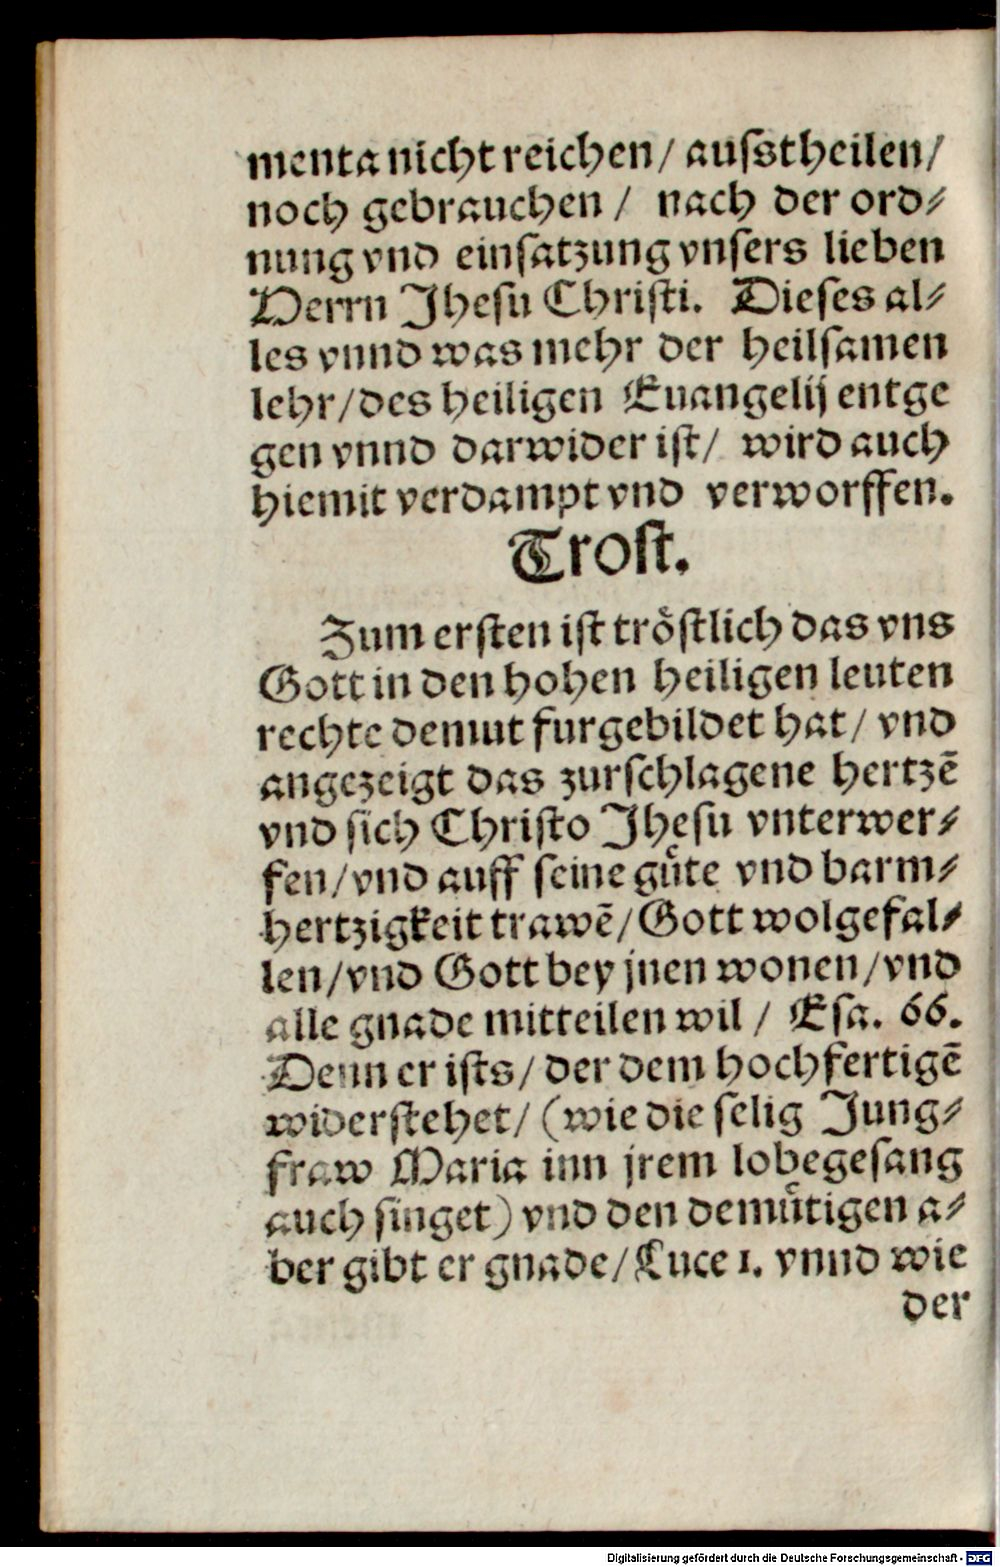 menta nicht reichen / ausstheilen /
noch gebrauchen / nach der ord⸗
nung vnd einsatzung vnsers lieben
Herrn Jhesu Christi. Dieses al⸗
les vnnd was mehr der heilsamen
lehr / des heiligen Euangelij entge
gen vnnd darwider ist / wird auch
hiemit verdampt vnd verworffen.
Trost.
Zum ersten ist trȯstlich das vns
Gott in den hohen heiligen leuten
rechte demut furgebildet hat / vnd
angezeigt das zurschlagene hertzē
vnd sich Christo Jhesu vnterwer⸗
fen / vnd auff seine gůte vnd barm⸗
hertzigkeit trawē / Gott wolgefal⸗
len / vnd Gott bey jnen wonen / vnd
alle gnade mitteilen wil / Esa. 66.
Denn er ists / der dem hochfertigē
widerstehet / (wie die selig Jung⸗
fraw Maria inn jrem lobegesang
auch singet) vnd den demůtigen a⸗
ber gibt er gnade / Luce 1. vnnd wie
der
Digitalisierung gefördert durch die Deutsche Forschungsgemeinschaft - DFG